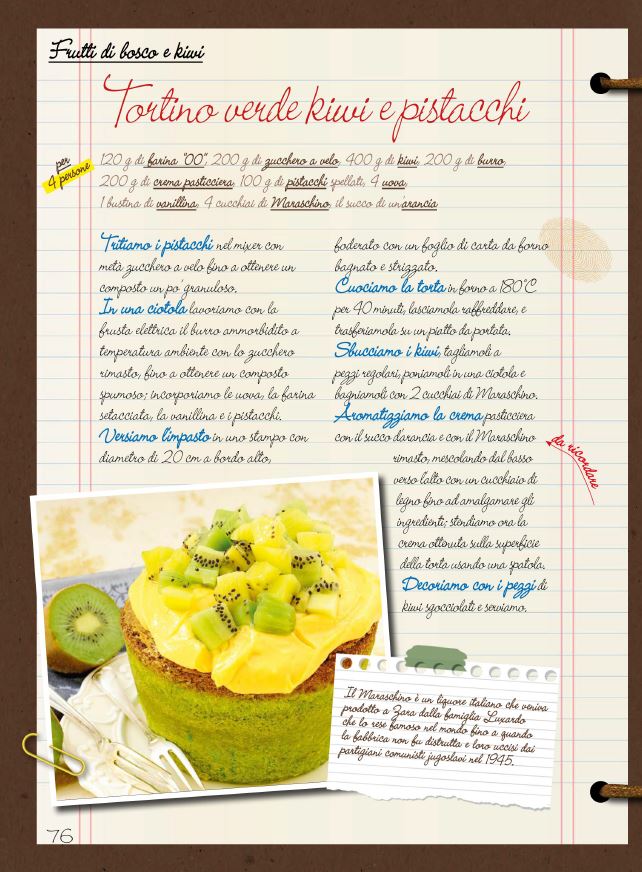 Frutti di bosco e kiwi
Tortino verde kiwi e pistacchi
per
4 persone
120 g di farina "00", 200 g di zucchero a velo, 400 g di kiwi, 200 g di burro,
200 g di crema pasticciera, 100 g di pistacchi spellati, 4 uova,
1 bustina di vanillina, 4 cucchiai di Maraschino, il succo di un'arancia
Tritiamo i pistacchi nel mixer con
metà zucchero a velo fino a ottenere un
composto un po' granuloso.
In una ciotola lavoriamo con la
frusta elettrica il burro ammorbidito a
temperatura ambiente con lo zucchero
rimasto, fino a ottenere un composto
spumoso; incorporiamo le uova, la farina
setacciata, la vanillina e i pistacchi.
Versiamo l'impasto in uno stampo con
diametro di 20 cm a bordo alto,
foderato con un foglio di carta da forno
bagnato e strizzato.
Cuociamo la torta in forno a 180°C
per 40 minuti, lasciamola raffreddare, e
trasferiamola su un piatto da portata.
Sbucciamo i kiwi, tagliamoli a
pezzi regolari, poniamoli in una ciotola e
bagniamoli con 2 cucchiai di Maraschino.
Aromatizziamo la crema pasticciera
con il succo d'arancia e con il Maraschino
rimasto, mescolando dal basso
verso l'alto con un cucchiaio di
legno fino ad amalgamare gli
ingredienti; stendiamo ora la
crema ottenuta sulla superficie
della torta usando una spatola.
Decoriamo con i pezzi di
kiwi sgocciolati e serviamo.
da ricordare
Il Maraschino è un liquore italiano che veniva
prodotto a Zara dalla famiglia Luxardo
che lo rese famoso nel mondo fino a quando
la fabbrica non fu distrutta e loro uccisi dai
partigiani comunisti jugoslavi nel 1945.
76